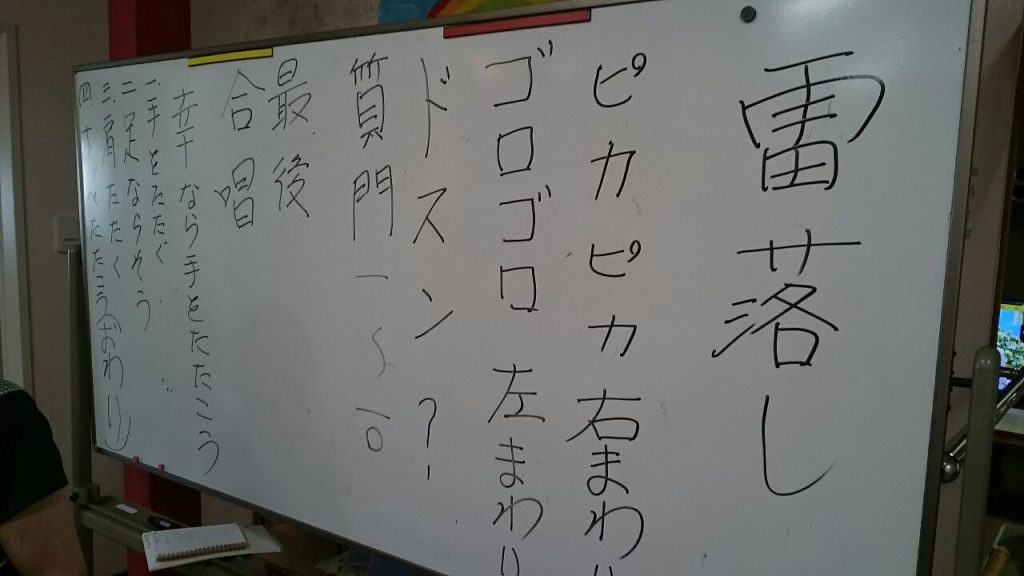 雷落し
ピカピカ 右まわり
ゴロゴロ 左まわり
ドスン?!
質問一〜一〇
最後
合唱
幸せなら手をたたこう
一、手をたたく
二、足ならそう
三、肩たたく
四、(おわり)